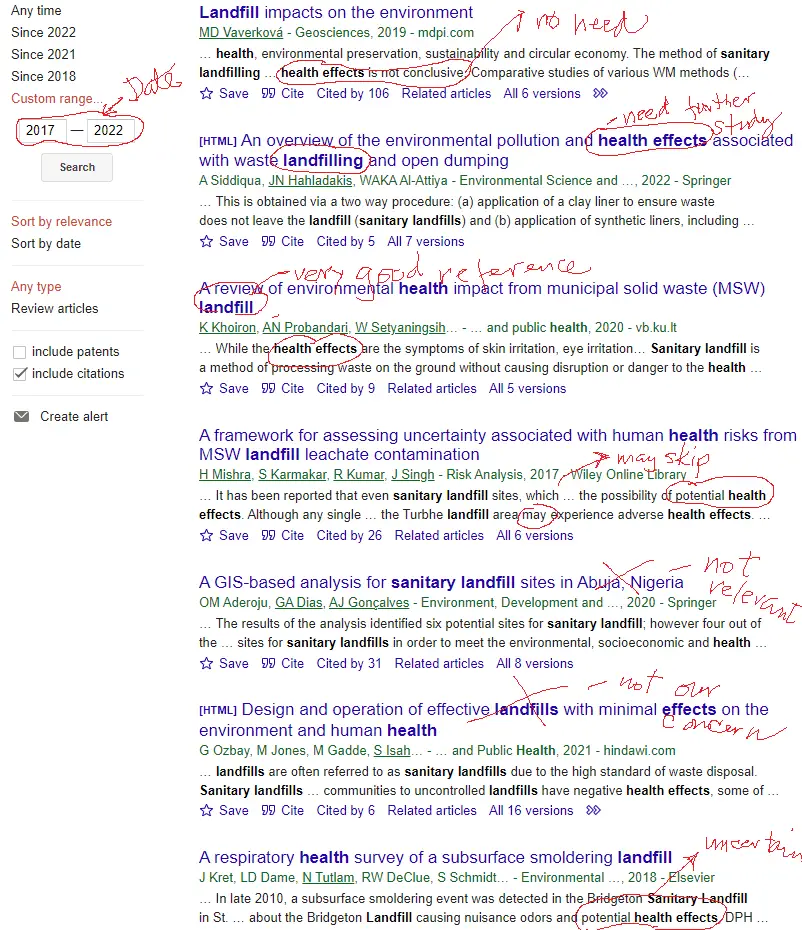 Any time
Since 2022
Since 2021
Since 2018
Custom range...
Date
2017 — 2022
Search
Sort by relevance
Sort by date
Any type
Review articles
include patents
include citations
Create alert
Landfill impacts on the environment
no need
MD Vaverková - Geosciences, 2019 - mdpi.com
… health, environmental preservation, sustainability and circular economy. The method of sanitary
landfilling … health effects is not conclusive. Comparative studies of various WM methods (…
Save Cite Cited by 106 Related articles All 6 versions
- need further
study
[HTML] An overview of the environmental pollution and health effects associated
with waste landfilling and open dumping
A Siddiqua, JN Hahladakis, WAKA Al-Attiya - Environmental Science and …, 2022 - Springer
… This is obtained via a two way procedure: (a) application of a clay liner to ensure waste
does not leave the landfill (sanitary landfills) and (b) application of synthetic liners, including …
Save Cite Cited by 5 All 7 versions
- very good reference
A review of environmental health impact from municipal solid waste (MSW)
landfill
K Khoiron, AN Probandari, W Setyaningsih… - … and public health, 2020 - vb.ku.lt
… While the health effects are the symptoms of skin irritation, eye irritation… Sanitary landfill is
a method of processing waste on the ground without causing disruption or danger to the health …
Save Cite Cited by 9 Related articles All 5 versions
A framework for assessing uncertainty associated with human health risks from
MSW landfill leachate contamination
may skip
H Mishra, S Karmakar, R Kumar, J Singh - Risk Analysis, 2017 - Wiley Online Library
… It has been reported that even sanitary landfill sites, which … the possibility of potential health
effects. Although any single … the Turbhe landfill area may experience adverse health effects. …
Save Cite Cited by 26 Related articles All 6 versions
- not
relevant
A GIS-based analysis for sanitary landfill sites in Abuja, Nigeria
OM Aderoju, GA Dias, AJ Gonçalves - Environment, Development and …, 2020 - Springer
… The results of the analysis identified six potential sites for sanitary landfill; however four out of
the … sites for sanitary landfills in order to meet the environmental, socioeconomic and health …
Save Cite Cited by 31 Related articles All 8 versions
- not our
concern
[HTML] Design and operation of effective landfills with minimal effects on the
environment and human health
G Ozbay, M Jones, M Gadde, S Isah… - … and Public Health, 2021 - hindawi.com
… landfills are often referred to as sanitary landfills due to the high standard of waste disposal.
Sanitary landfills … communities to uncontrolled landfills have negative health effects, some of …
Save Cite Cited by 6 Related articles All 16 versions
uncertain
A respiratory health survey of a subsurface smoldering landfill
J Kret, LD Dame, N Tutlam, RW DeClue, S Schmidt… - Environmental …, 2018 - Elsevier
… In late 2010, a subsurface smoldering event was detected in the Bridgeton Sanitary Landfill
in St. … about the Bridgeton Landfill causing nuisance odors and potential health effects. DPH …